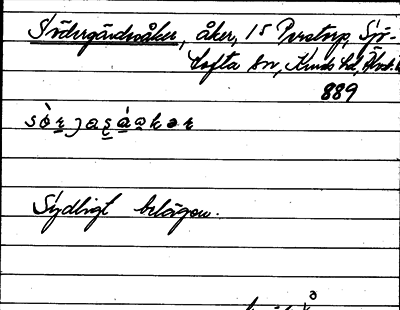 Södergärdesåker, åker, 15 Perstorp, Sjö-
tofta sn, Kinds hd, Älvsb. l.
889
Sydligt belägen.